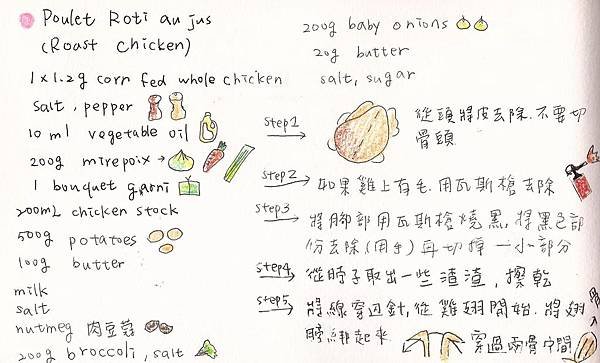 Poulet Roti au jus
(Roast chicken)
1 x 1.2g corn fed whole chicken
salt, pepper
10 ml vegetable oil
200g mirepoix →
1 bouquet garni
200mL chicken stock
500g potatoes
100g butter
milk
salt
nutmeg 肉豆蔻
200g broccoli, salt
200g baby onions
20g butter
salt, sugar
step1 → 從頭將皮去除.不要切
骨頭
step2 → 如果雞上有毛.用瓦斯槍去除
step3 → 將腳部用瓦斯槍燒黑,將黑色部
份去除(用手)再切掉一小部分
step4 → 從脖子取出一些渣渣,擦乾
step5 → 將線穿過針,從雞翅開始.將翅
膀綁起來 穿過兩骨中間